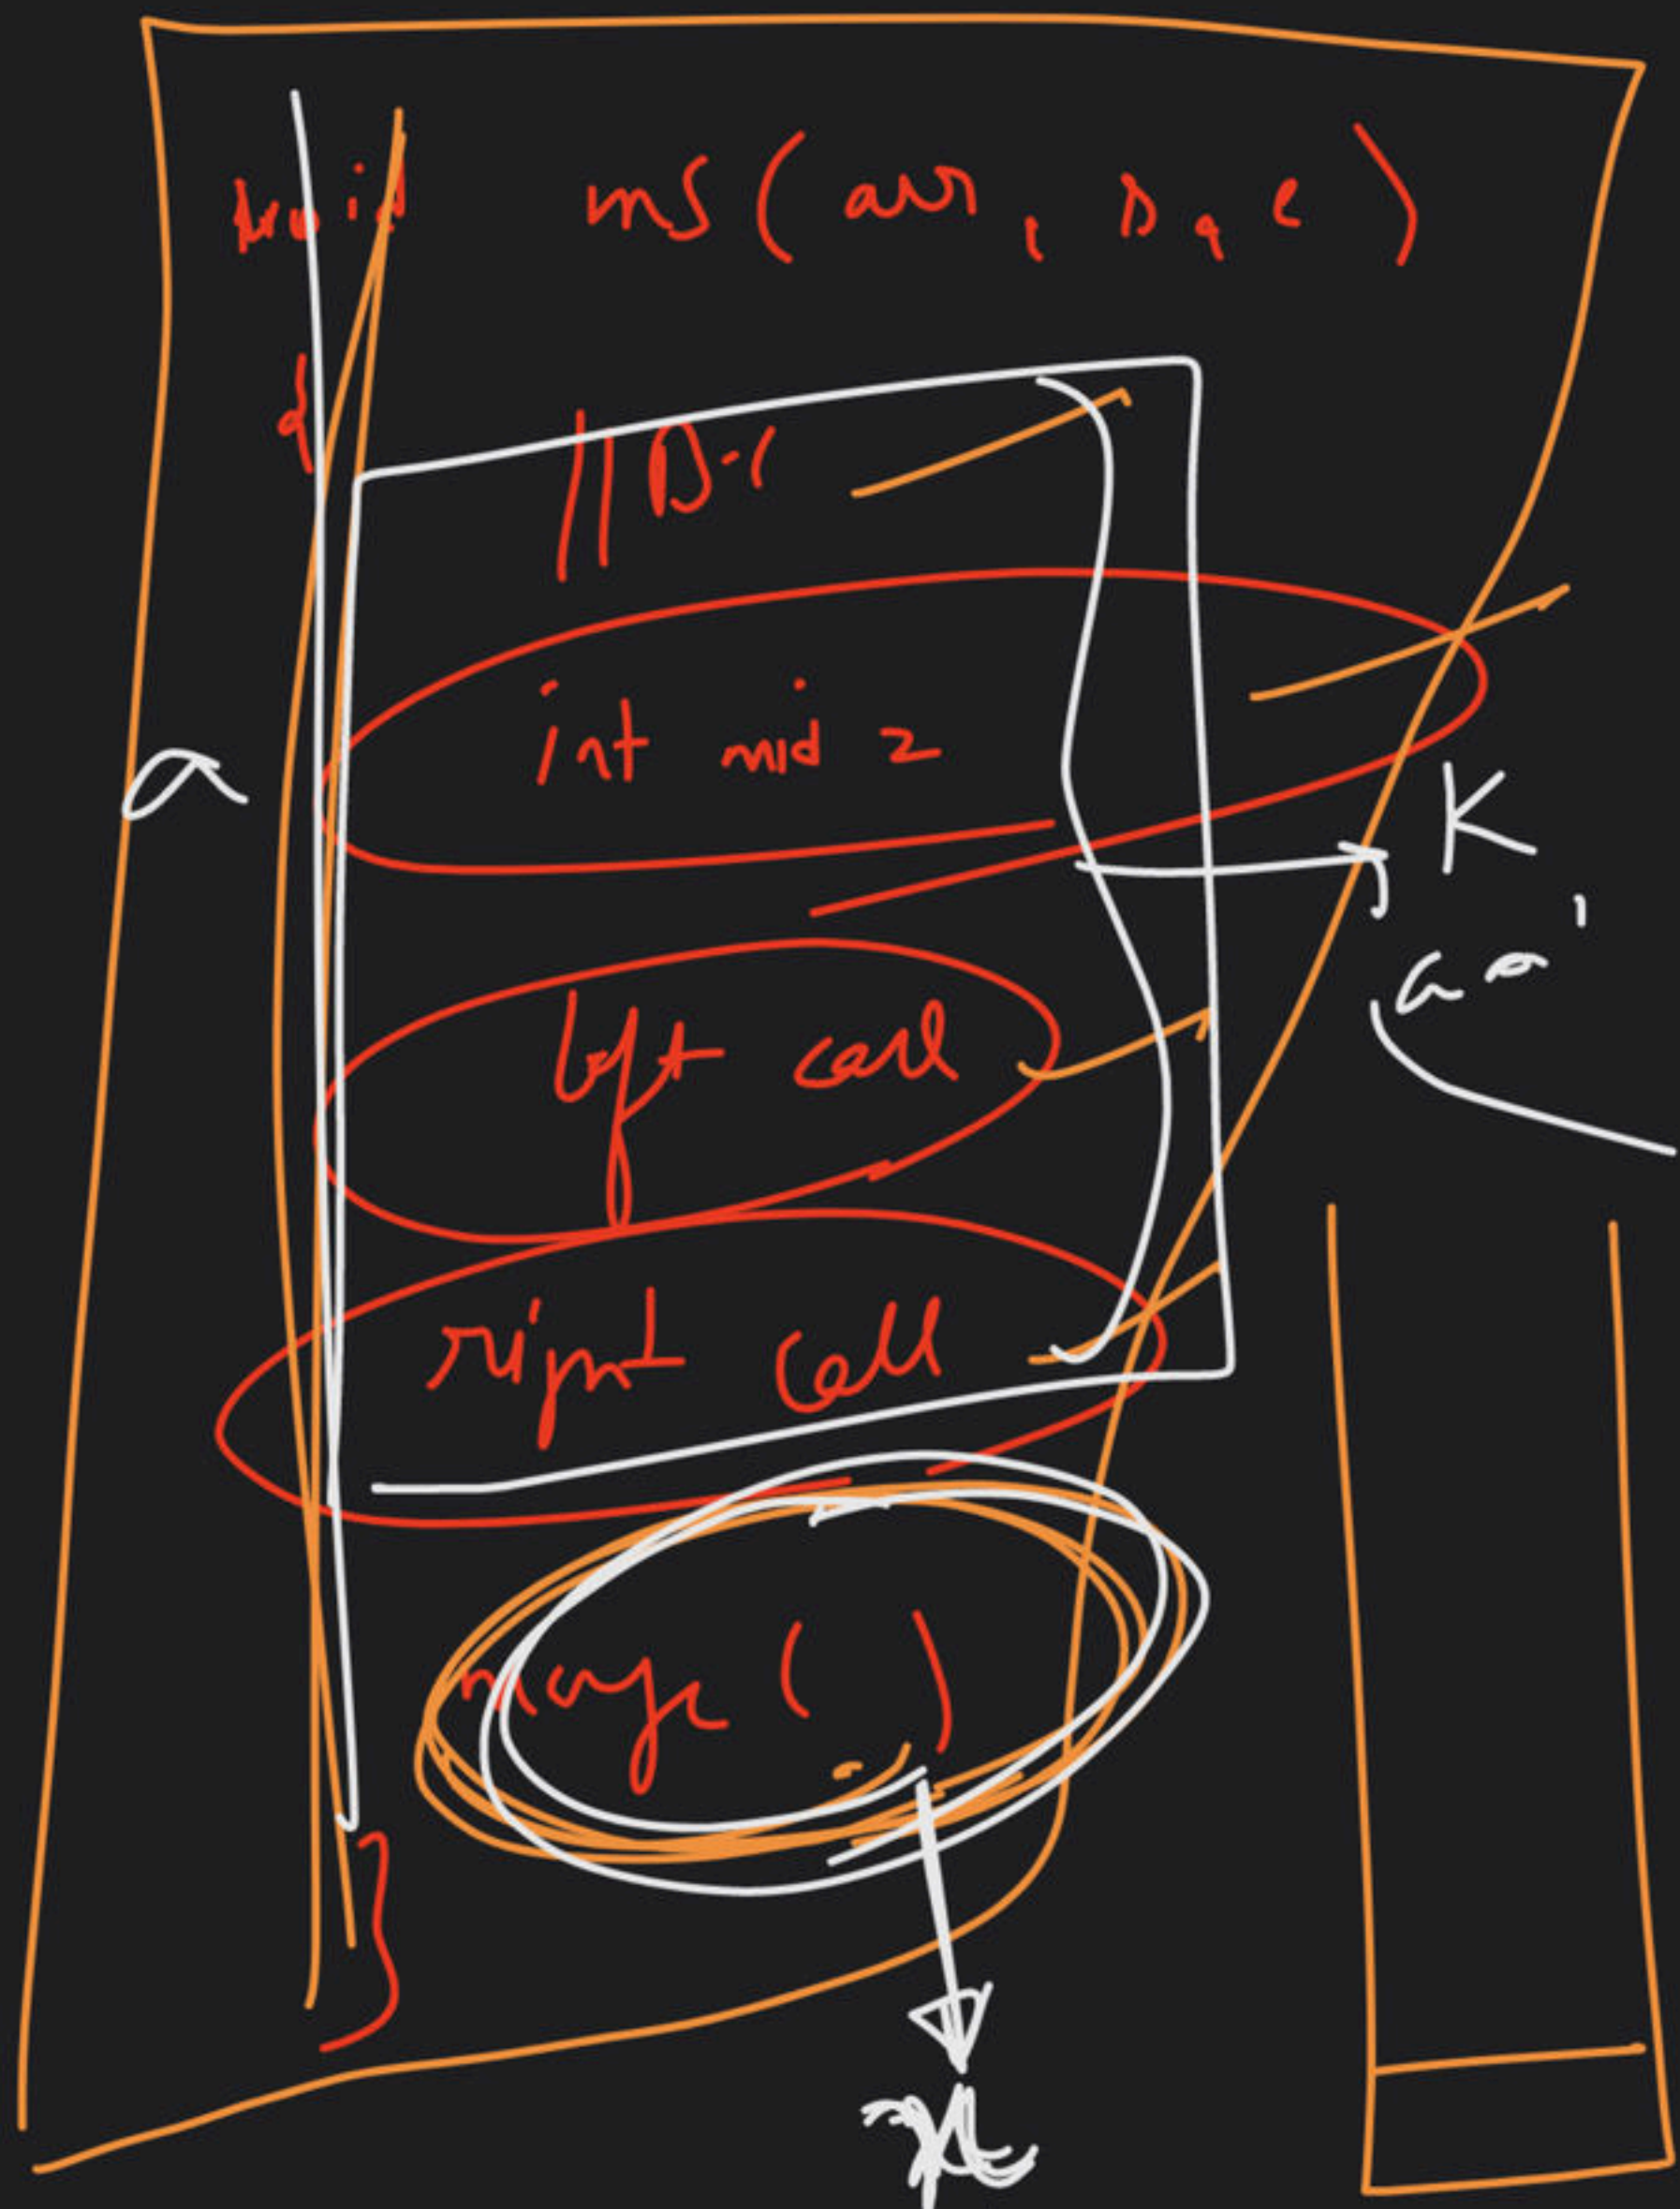 void ms(arr, s, e)
{
// B-C
int mid =
left call
right call
merge ( )
}
a
K
x